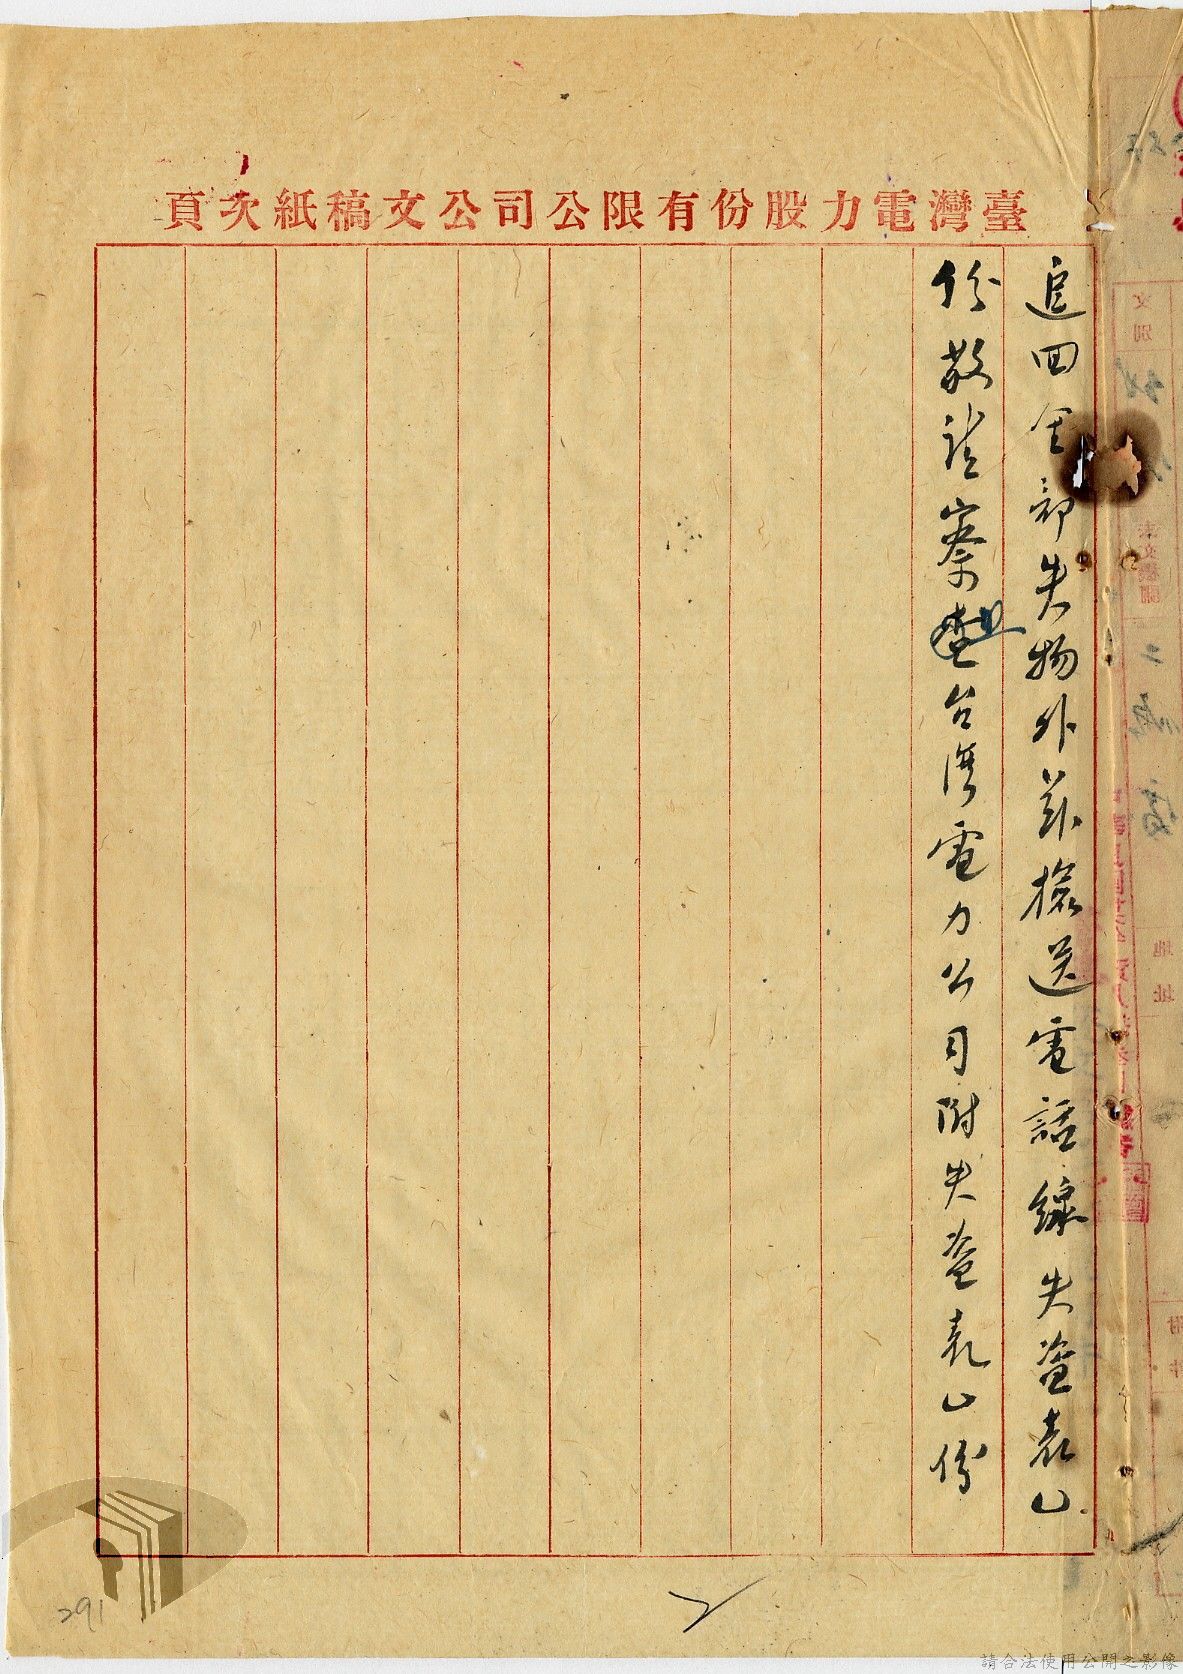 臺灣電力股份有限公司公文稿紙次頁
追回全部失物外茲檢送電話線失盜表乙
份敬請察照台灣電力公司附失盜表乙份
291
請合法使用公開之影像